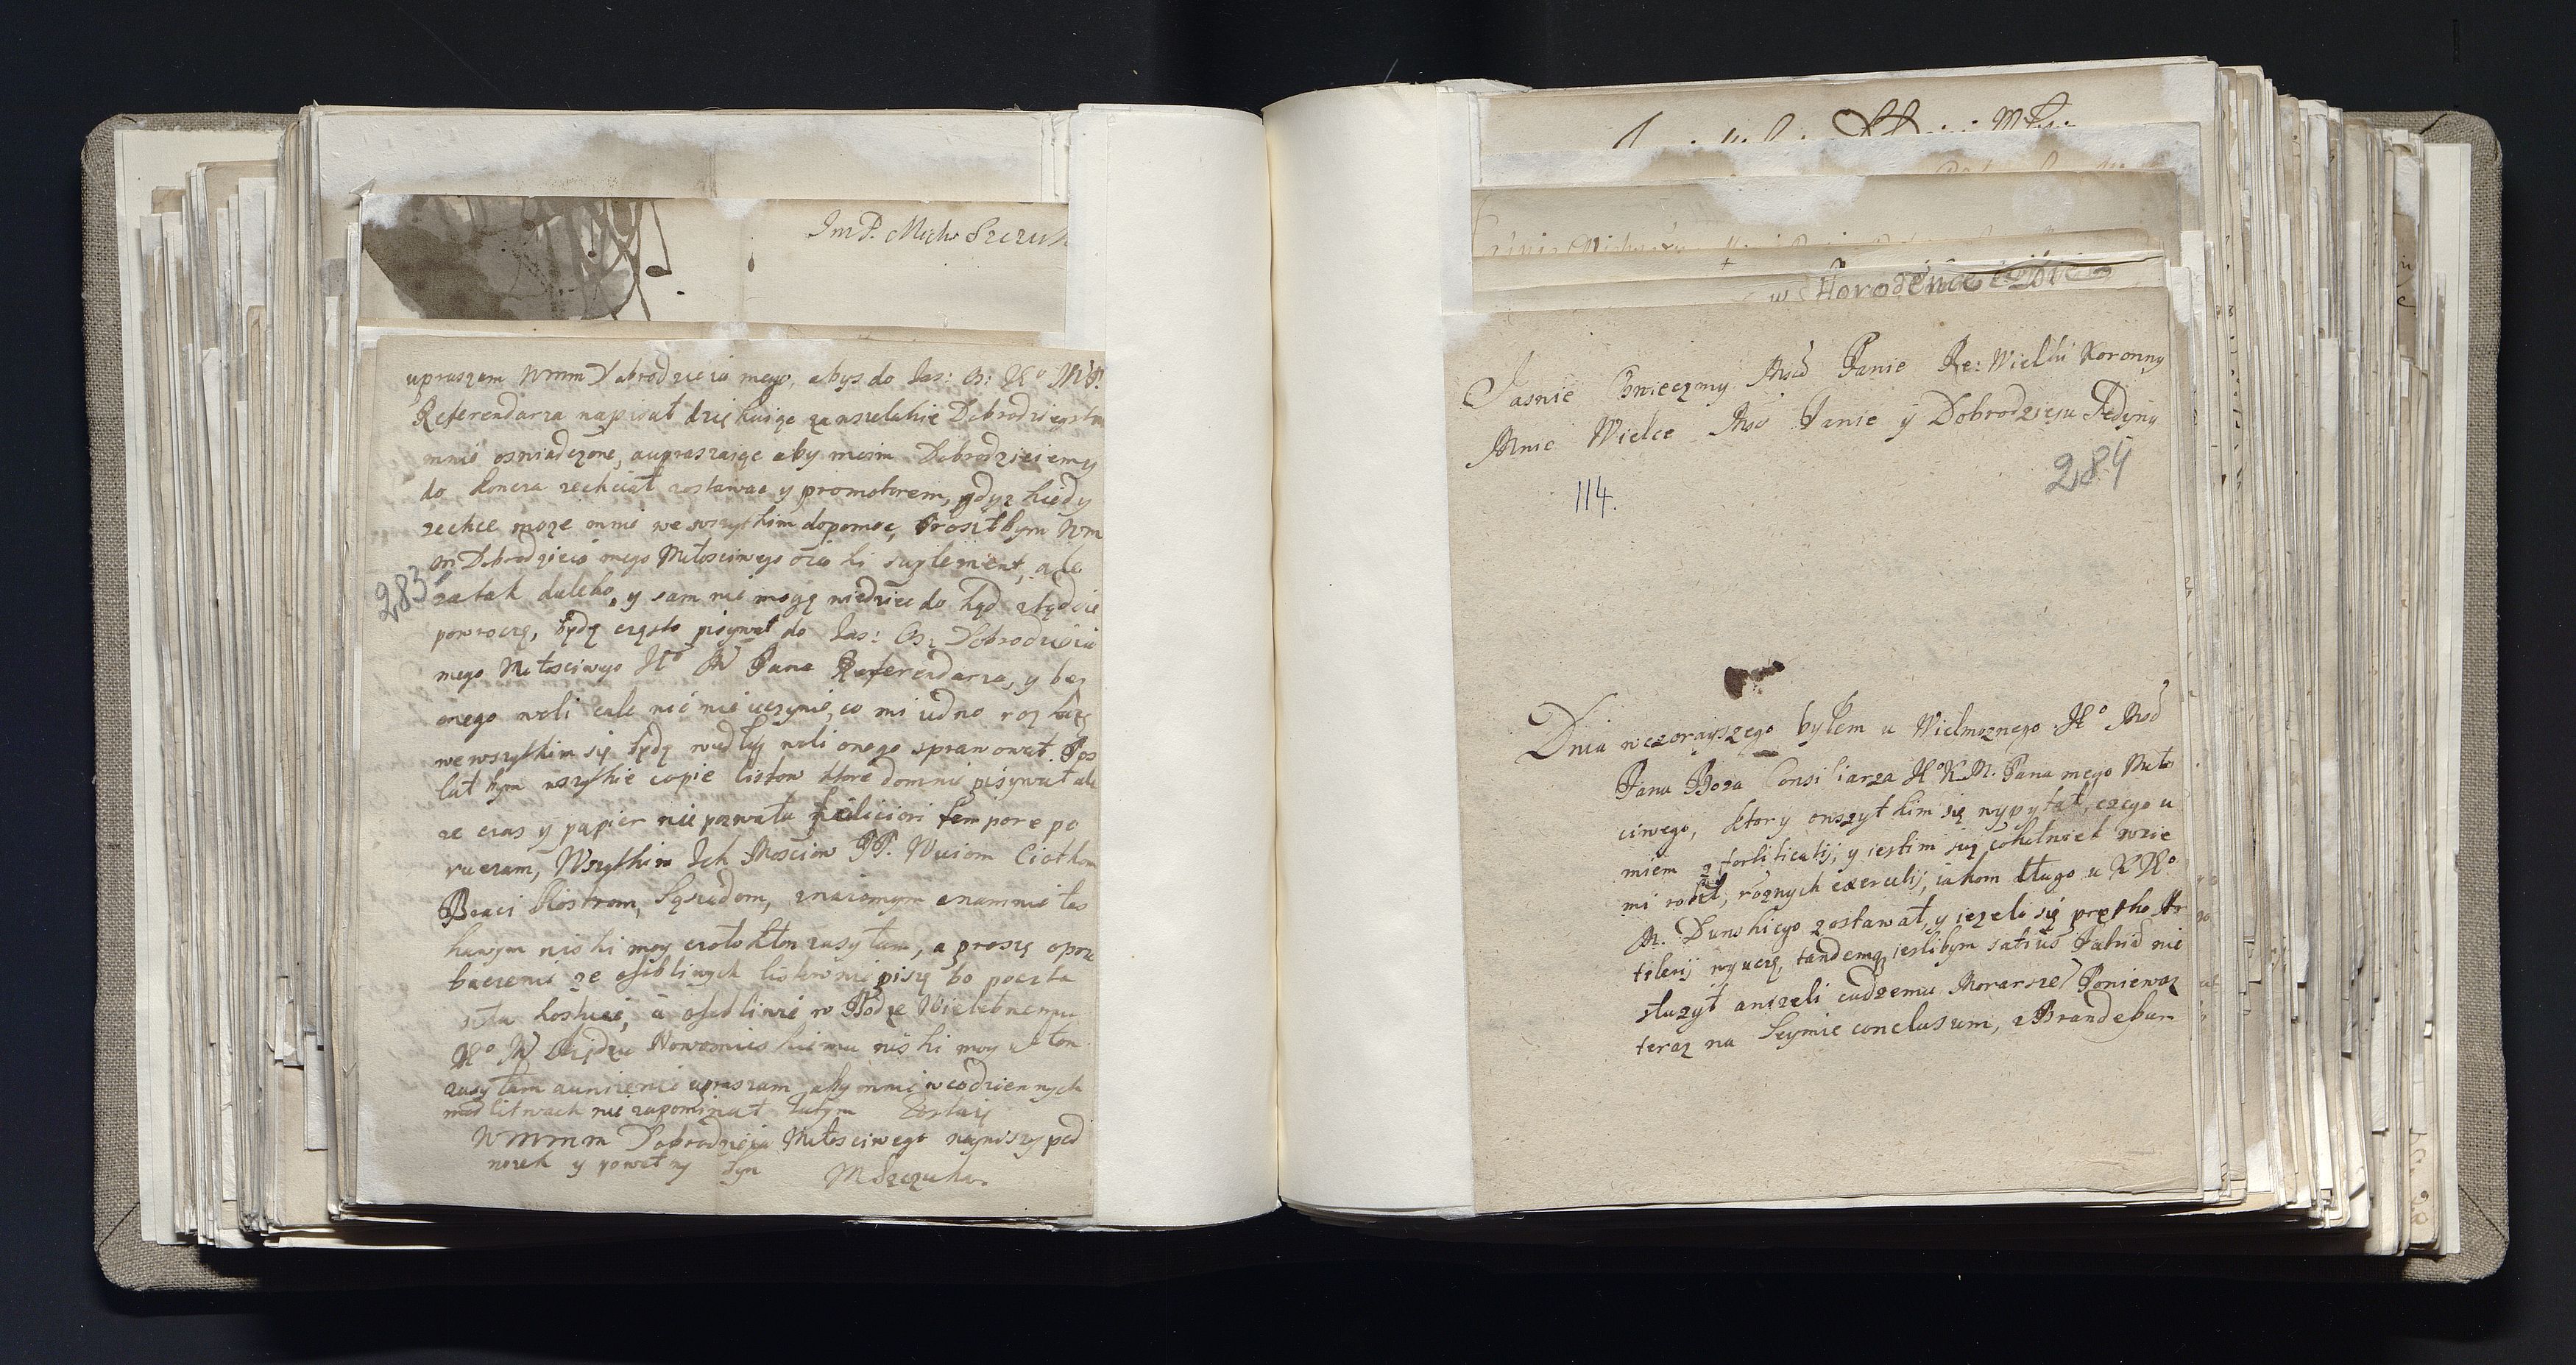 ImP. Mich. Szczuk
upraszam WmmDobrodzieia mego, abys do Jas: O: Jº MP.
Referendarza napisał dziękuiąc za wszelakie Dobrodzieystw
mnie oswiadczone, a upraszaiąc aby moim Dobrodzieiem y
do konca zechciał zostawac y promotorem, gdyz kiedy
zechce moze mnie we wszytkim dopomoc, Prosiłbym Wm
m Dobrodzieia mego Miłosciwego o iaki suplement, ale
283
za tak daleko, y sam nie mogę wiedziec dokąd ztąd się
powrocę, będę często pisywał do Jas: O: Dobrodzieia
mego Miłosciwego Jº M Pana Referendarza, y bez
onego woli cale nic nie uczynię, co mi iedno rozkaze
we wszytkim się będę według woli onego sprawował. Pos
łałbym wszytkie copie listow ktore do mnie pisywał ale
ze czas y papier nie pozwala feliciori tempore po
ruczam, Wszytkim Ich Mosciom PP. Wuiom Ciotkom
Braci Siostrom, Sąsiadom, znaiomym a na mnie łas
kawym niski moy czołokłon zasyłam, a proszę o prze
baczenie ze osobliwych listow nie piszę bo poczta
siła kosztuie, a osobliwie w Bodze Wielebnemu
Jº M Xiędzu Nowomieiskiemu niski moy ukłon
zasyłam a unizenie upraszam aby mnie w codziennych
modlitwach nie zapominał Zatym Zostaię
Wmmm Dobrodzieia Miłosciwego nayniszy pod
nozek y powolny syn MSzczuka.
w Horodence
Jasnie Oswieczony Msci Panie Re: Wielki Koronny
Mnie Wielce Msci Panie y Dobrodzieju Jedyny
284
114.
Dnia wczorayszego byłem u Wielmoznego Jº Msci
Pana Boza Consiliarza JºK.M. Pana mego Miło
ciwego, ktory o wszytkim się wypytał, czego u
miem z fortificatij, y iestim się cokolwiek w zie
mi robił, roznych exercitij, iakom długo u K Jº
M. Dunskiego zostawał, y iezeli się prętko Ar
tilerij wyuczę, tandemq ieslibym satius Patriae nie
słuzył anizeli cudzemu Monarsze Poniewaz
teraz na Seymie conclusum, z Brandebur